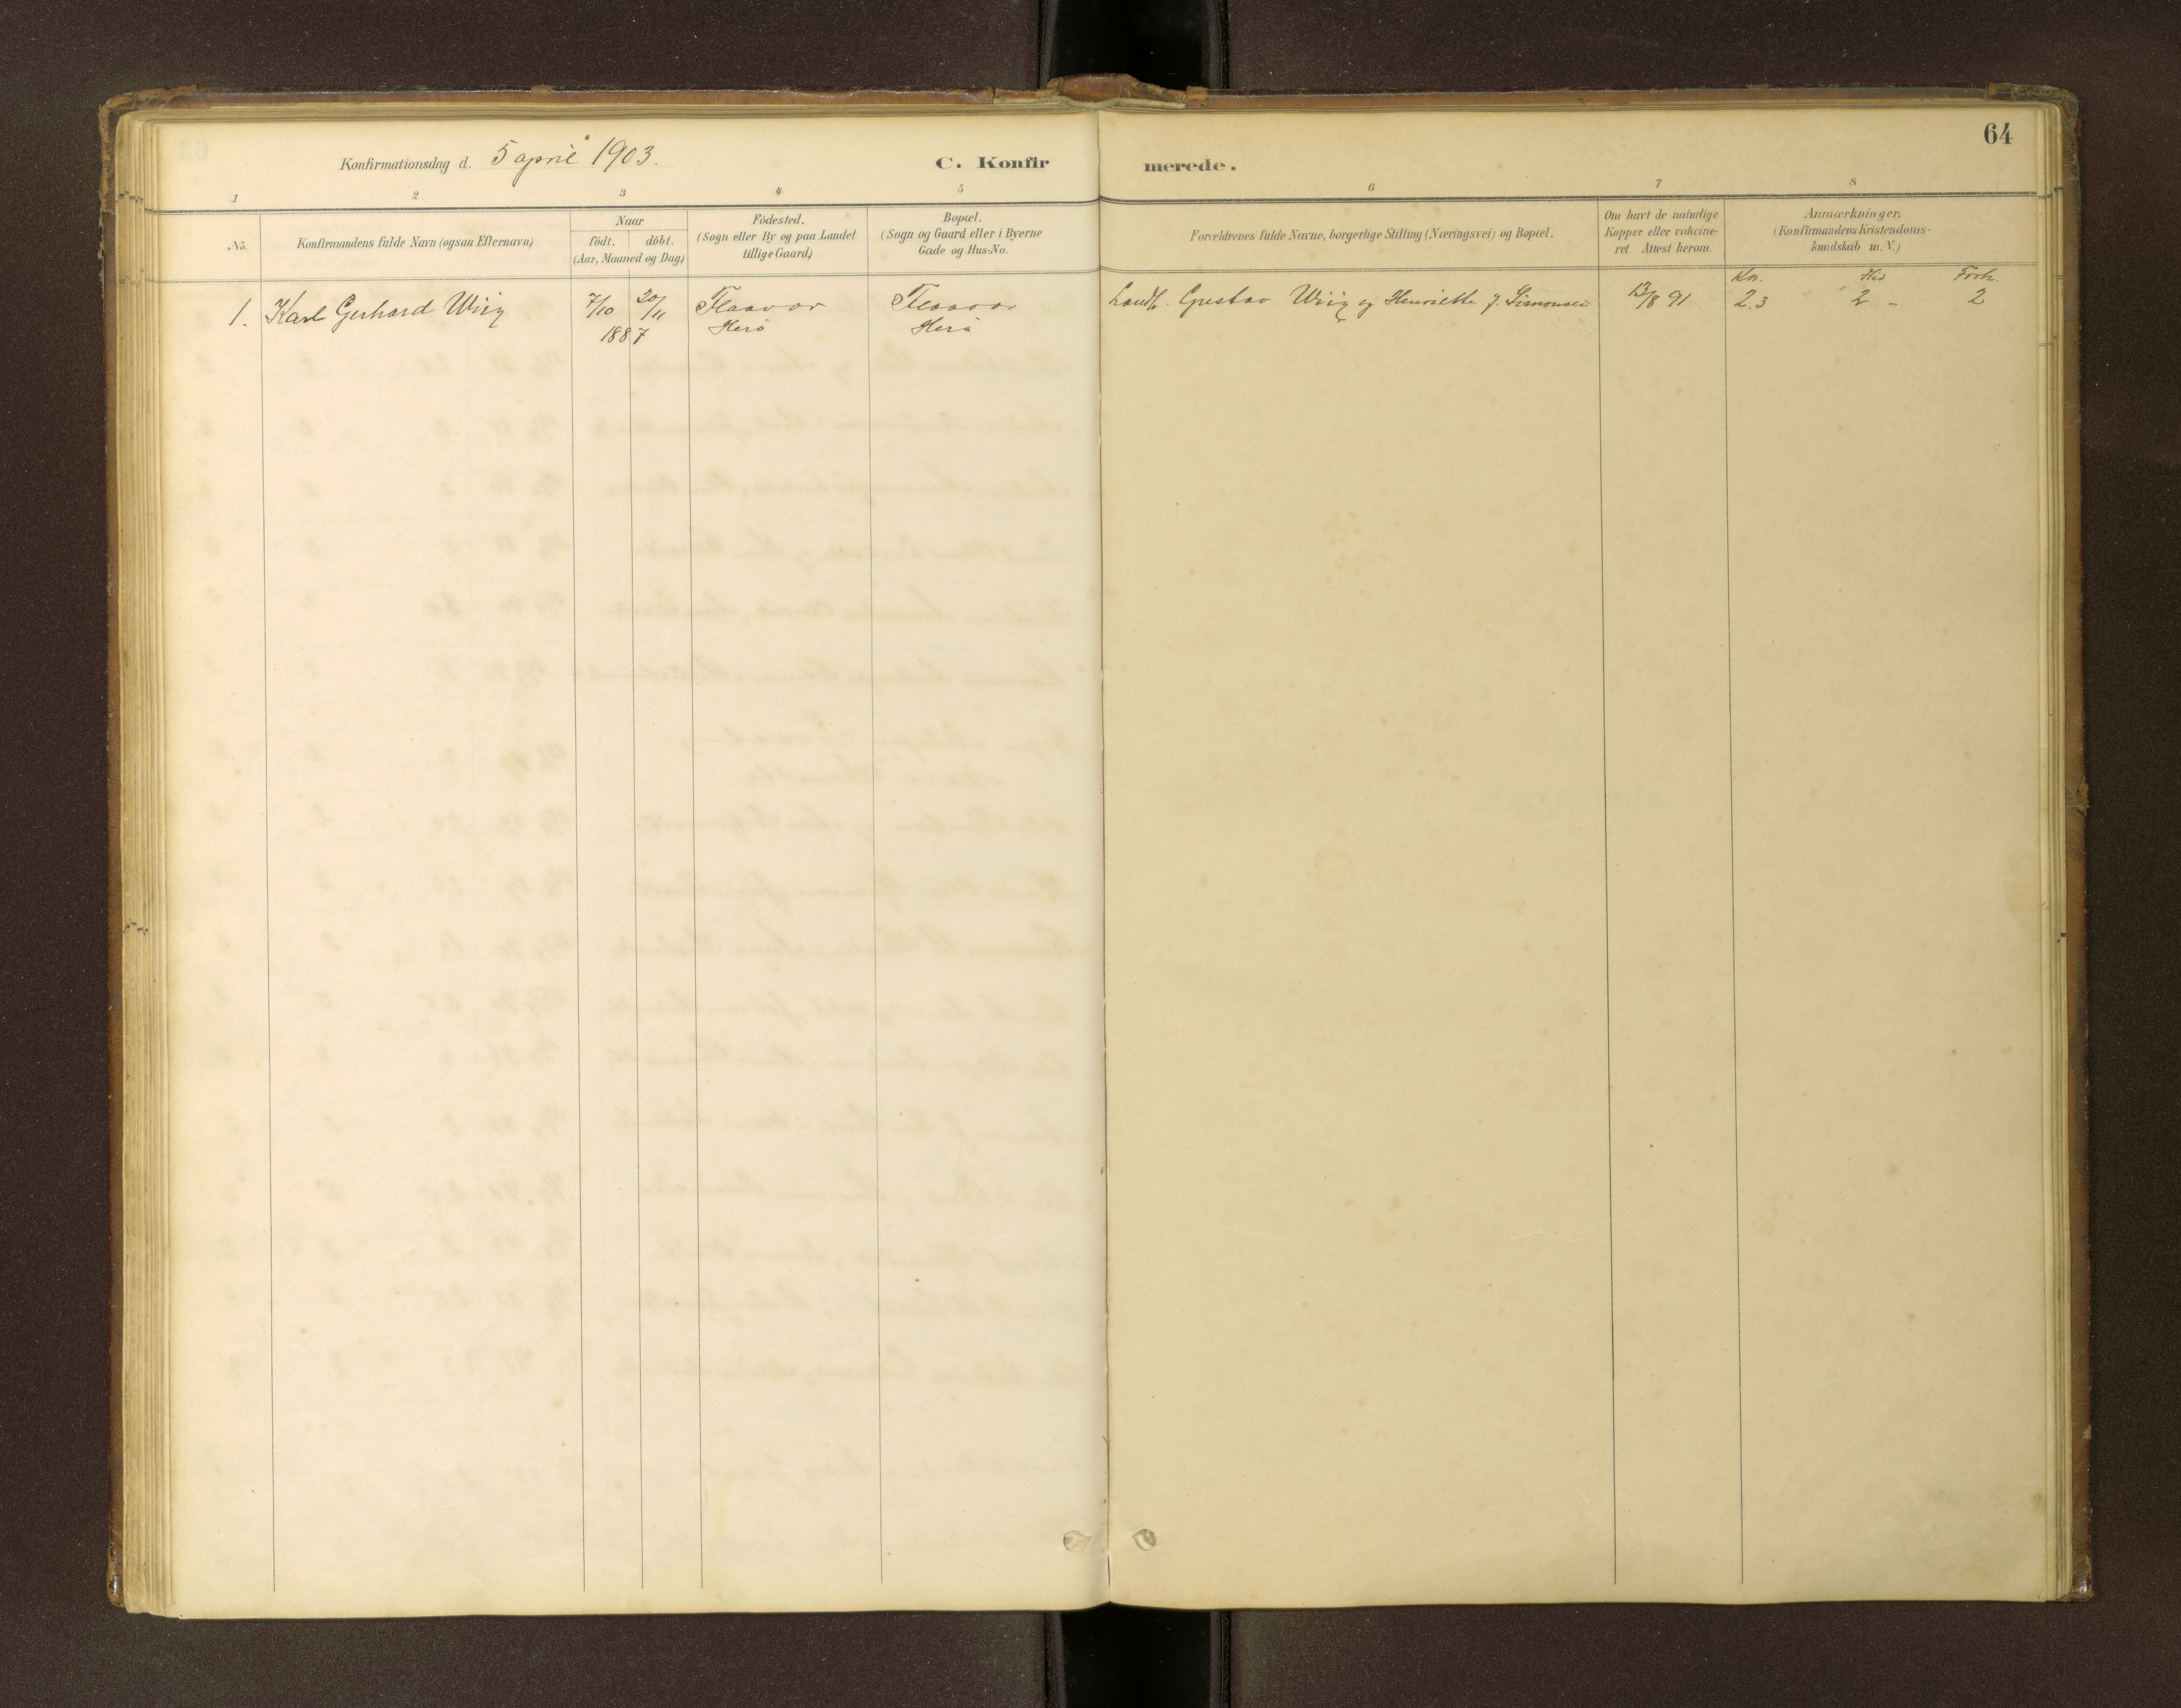 64
Konfirmationsdag d. 5 april 1903. C. Konfirmerede.
1 2 3 4 5 6 7 8
No.
Konfirmandens fulde Navn (ogsaa Efternavn)
Naar
födt. döbt.
(Aar, Maaned og Dag)
Födested.
(Sogn eller By og paa Landet
tillige Gaard)
Bopæl.
(Sogn og Gaard eller i Byerne
Gade og Hus-No.
Forældrenes fulde Navne, borgerlige Stilling (Næringsvei) og Bopæl.
Om havt de naturlige
Kopper eller vakcine-
ret. Attest herom.
Anmærkninger.
(Konfirmandens Kristendoms-
kundskab m. V.)
Kn. Flid Forh.
1. Karl Gerhard Wiig 7/10 20/11 Flaavær Flaavær Landh. Gustav Wiig og Henriette J. Simonsen 13/8 91 2.3 2 - 2
1887 Herö Herö